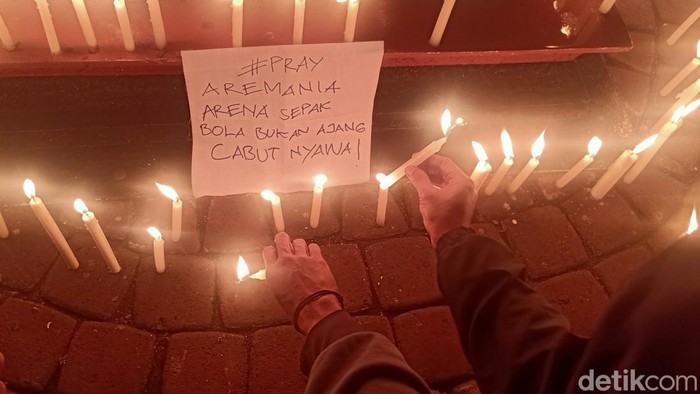 #PRAY
AREMANIA
ARENA SEPAK
BOLA BUKAN AJANG
CABUT NYAWA!
detikcom